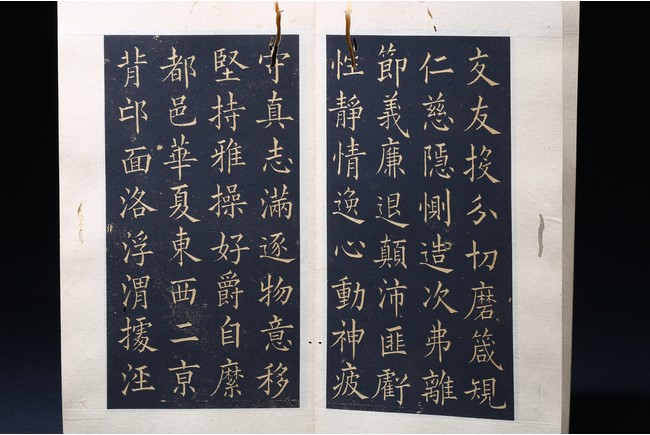 交友投分切磨箴規
仁慈隱惻造次弗離
節義廉退顛沛匪虧
性靜情逸心動神疲
守真志滿逐物意移
堅持雅操好爵自縻
都邑華夏東西二京
背邙面洛浮渭據涇